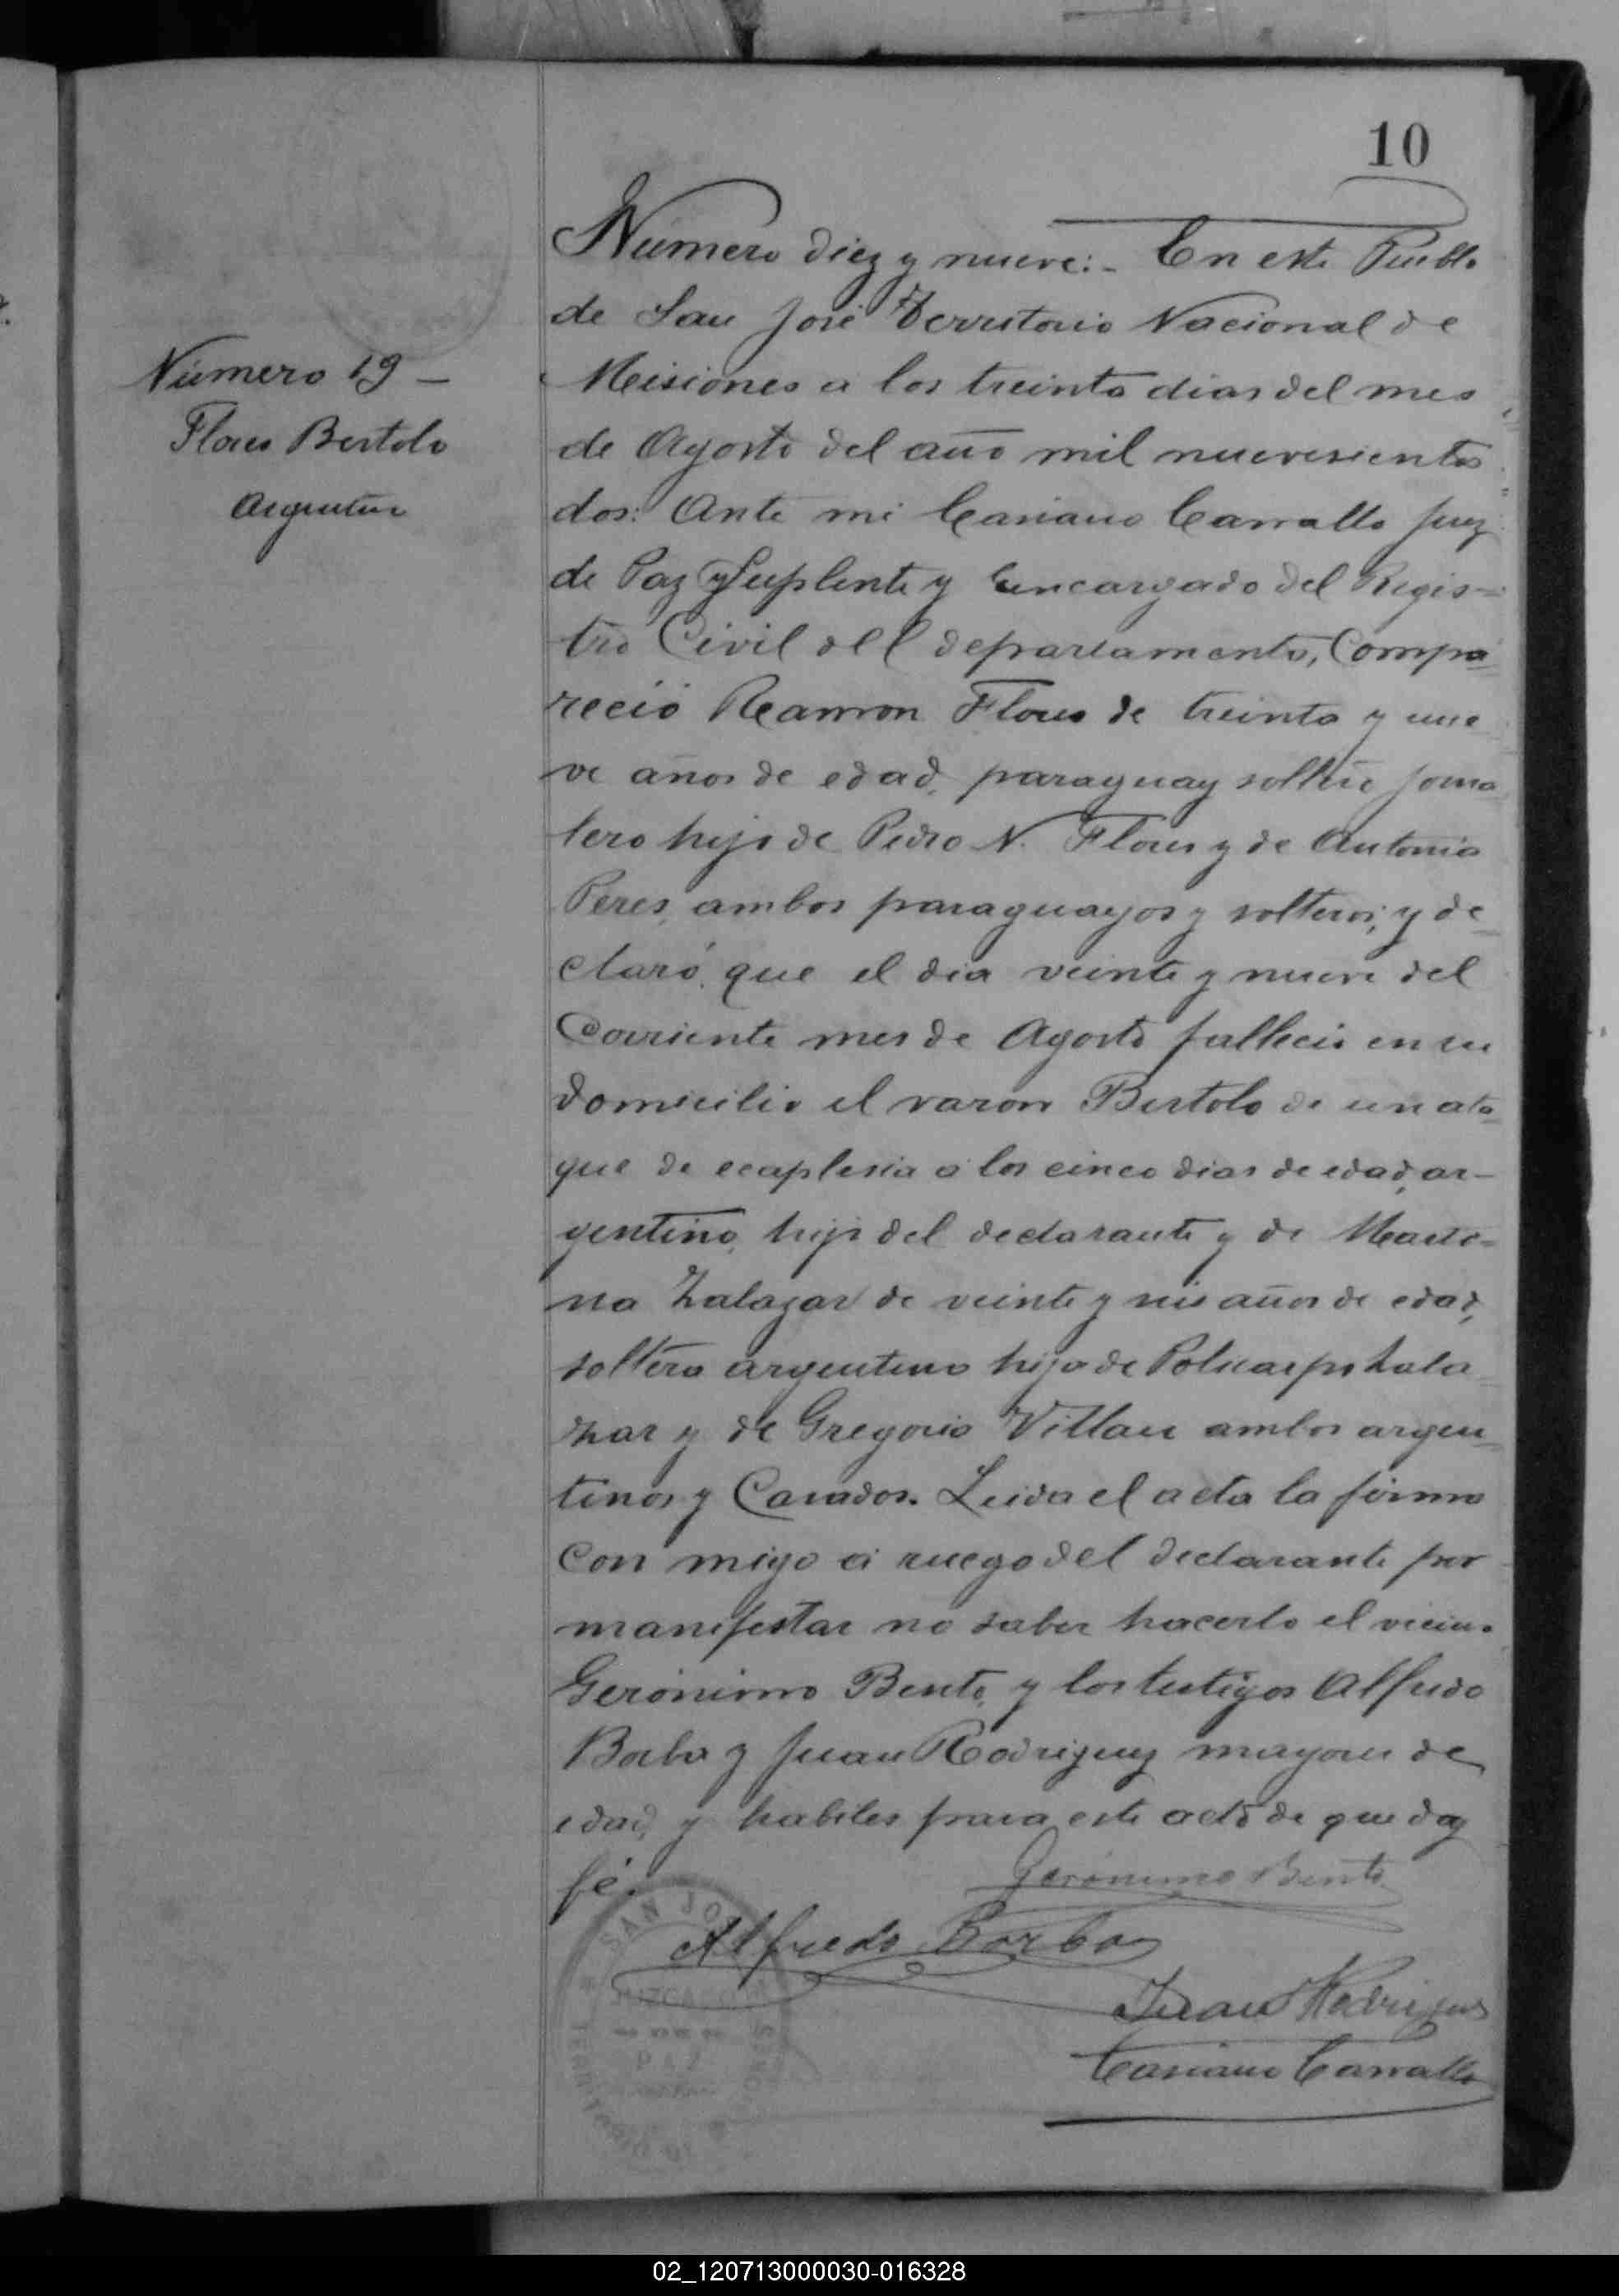 10
Número 19 –
Flores Bertolo
Argentino
Número diez y nueve:- En este Pueblo
de San José Territorio Nacional de
Misiones a los treinta dias del mes
de Agosto del año mil nuevesientos
dos: Ante mi Casiano Carvallo Juez
de Paz Suplente y Encargado del Regis-
tro Civil del departamento, Compa-
reció Ramon Flores de treinta y nue
ve años de edad, paraguay soltero jorna
lero hijo de Pedro N. Flores y de Antonia
Peres, ambos paraguayos y solteros; y de-
claró que el dia veinte y nueve del
Corriente mes de Agosto fallecio en su
domicilio el varon Bertolo de un ata-
que de ecaplesia a los cinco dias de edad, ar-
gentino, hijo del declarante y de Marti-
na Zalazar de veinte y seis años de edad,
soltera argentina hija de Policarpo Zala-
zar y de Gregoria Villan ambos argen-
tinos y Casados. Leida el acta la firma
Con migo a ruego del declarante por
manifestar no saber hacerlo el vecino
Gerónimo Bento y los testigos Alfredo
Borba y Juan Rodriguez mayores de
edad, y habiles para este acto de que doy
fé.
Gerónimo Bento
Alfredo Borba
Juan Rodrigues
Casiano Carvallo
SAN JOSE
JUZGADO
PAZ
02_120713000030-016328